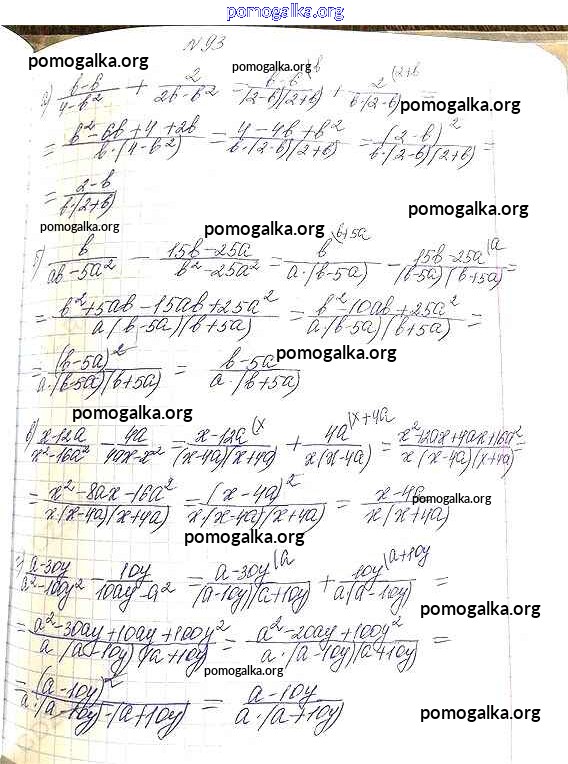 pomogalka.com
N 93
pomogalka.org
а) (b-b)/(4-b²) + 2/(2b-b²) = (b-b \b)/((2-b)(2+b)) + (2 \2+b)/(b·(2-b)) =
pomogalka.org
= (b²-6b+4+2b)/(b·(4-b²)) = (4-4b+b²)/(b·(2-b)(2+b)) = (2-b)²/(b·(2-b)(2+b)) =
pomogalka.org
= (2-b)/(b·(2+b))
pomogalka.org
pomogalka.org
б) b/(ab-5a²) - (15b-25a)/(b²-25a²) = (b \b+5a)/(a·(b-5a)) - (15b-25a \a)/((b-5a)(b+5a)) =
= (b²+5ab-15ab+25a²)/(a(b-5a)(b+5a)) = (b²-10ab+25a²)/(a(b-5a)(b+5a)) =
pomogalka.org
= (b-5a)²/(a·(b-5a)(b+5a)) = (b-5a)/(a·(b+5a))
pomogalka.org
в) (x-12a)/(x²-16a²) - 4a/(4ax-x²) = (x-12a \x)/((x-4a)(x+4a)) + (4a \x+4a)/(x(x-4a)) = (x²-12ax+4ax+16a²)/(x(x-4a)(x+4a)) =
= (x²-8ax-16a²)/(x(x-4a)(x+4a)) = (x-4a)²/(x·(x-4a)(x+4a)) = (x-4a)/(x(x+4a))
pomogalka.org
pomogalka.org
г) (a-30y)/(a²-100y²) - 10y/(10ay-a²) = (a-30y \a)/((a-10y)(a+10y)) + (10y \a+10y)/(a(a-10y)) =
pomogalka.org
= (a²-30ay+10ay+100y²)/(a·(a-10y)(a+10y)) = (a²-20ay+100y²)/(a·(a-10y)(a+10y)) =
pomogalka.org
= (a-10y)²/(a·(a-10y)·(a+10y)) = (a-10y)/(a·(a+10y))
pomogalka.org